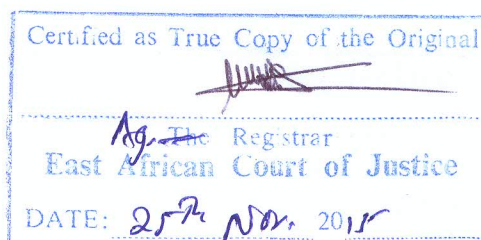 Certified as True Copy of the Original
Ag. The Registrar
East African Court of Justice
DATE: 25th Nov. 2015